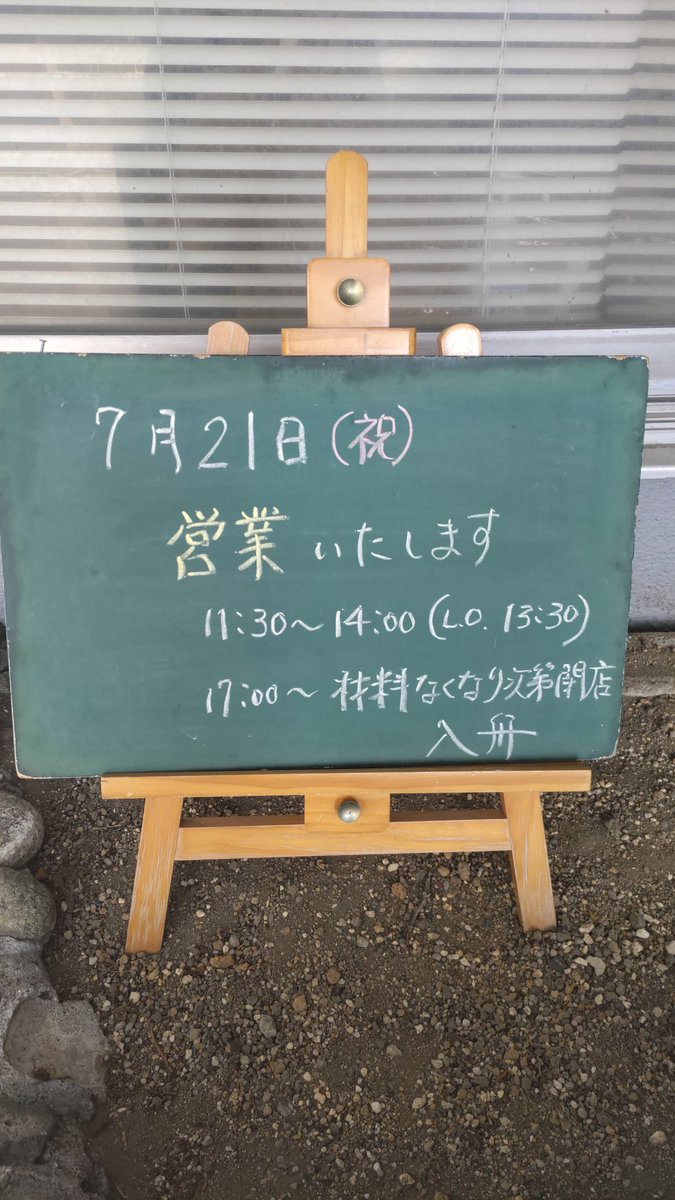 7月21日(祝)
営業いたします
11:30〜14:00(L.O. 13:30)
17:00〜材料なくなり次第閉店
入舟